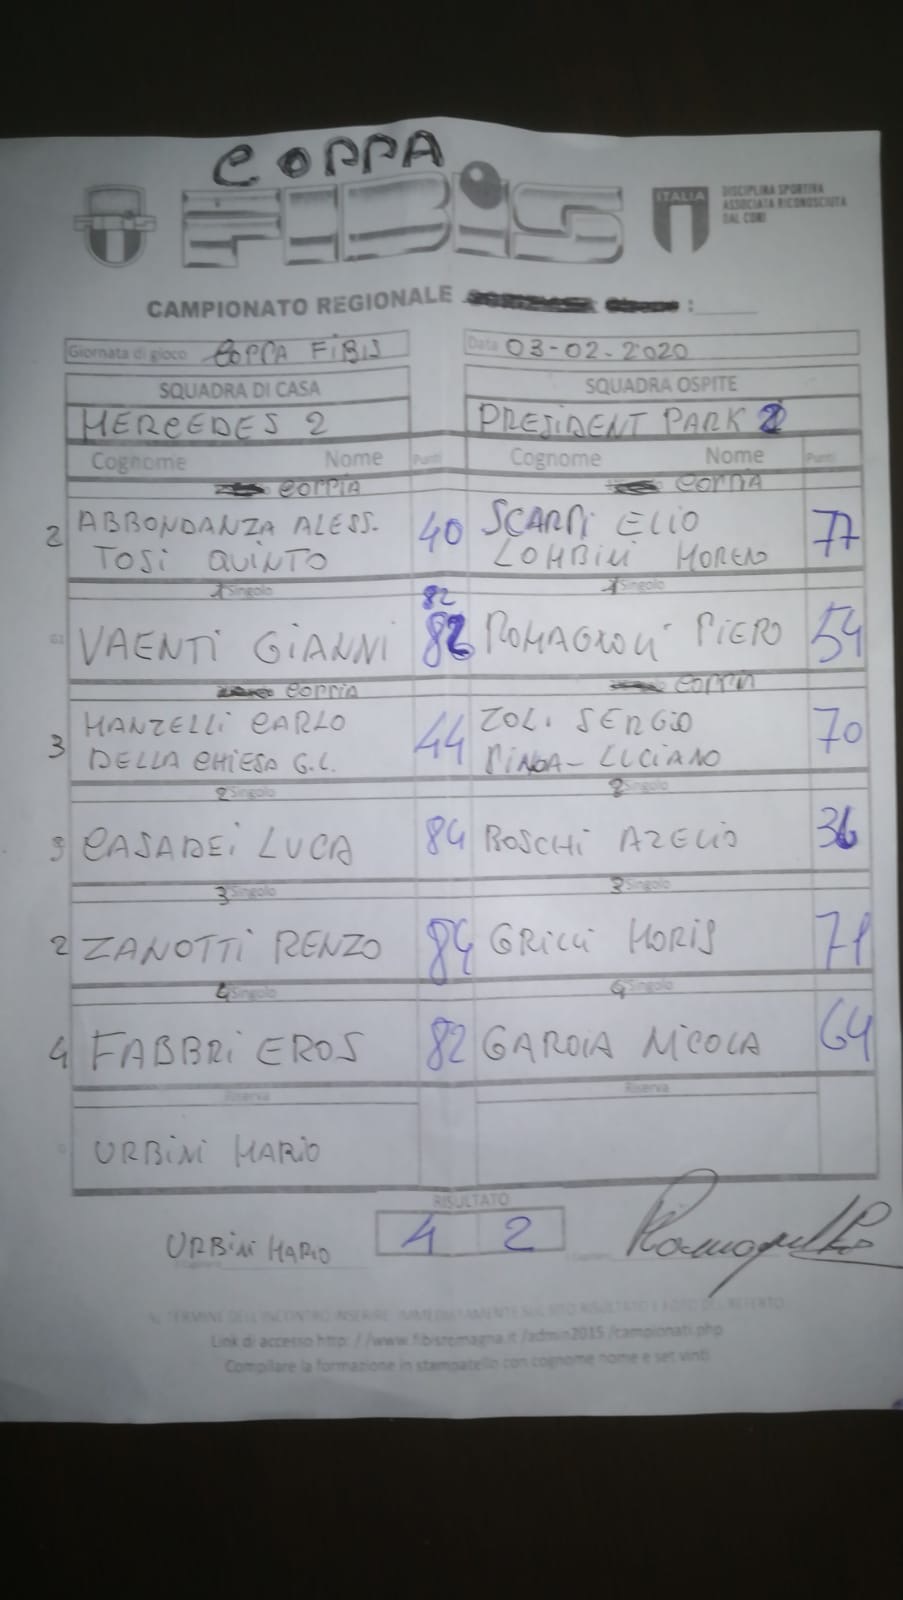 COPPA
FIBIS
ITALIA
DISCIPLINA SPORTIVA
ASSOCIATA RICONOSCIUTA
DAL CONI
CAMPIONATO REGIONALE :
Giornata di gioco COPPA FIBIS Data 03-02-2020
SQUADRA DI CASA SQUADRA OSPITE
MERCEDES 2 PRESIDENT PARK 2
Cognome Nome Punti Cognome Nome Punti
COPPIA COPPIA
2 ABBONDANZA ALESS. 40 SCARPI ELIO 77
TOSI QUINTO LOMBINI MORENO
1 Singolo 82 1 Singolo
VAENTI GIANNI 82 ROMAGNOLI PIERO 54
COPPIA COPPIA
3 MANZELLI CARLO 44 ZOLI SERGIO 70
DELLA CHIESA G.L. LUCIANO
2 Singolo 2 Singolo
3 CASADEI LUCA 84 BOSCHI AZELIO 36
3 Singolo 3 Singolo
2 ZANOTTI RENZO 84 GRILLI MORIS 71
4 Singolo 4 Singolo
4 FABBRI EROS 82 GAROIA NICOLA 64
Riserva Riserva
URBINI MARIO
RISULTATO
URBINI MARIO 4 2
AL TERMINE DELL'INCONTRO INSERIRE IMMEDIATAMENTE SUL SITO RISULTATO E FOTO DEL REFERTO
Link di accesso http: //www.fibisromagna.it /admin2015 /campionati.php
Compilare la formazione in stampatello con cognome nome e set vinti